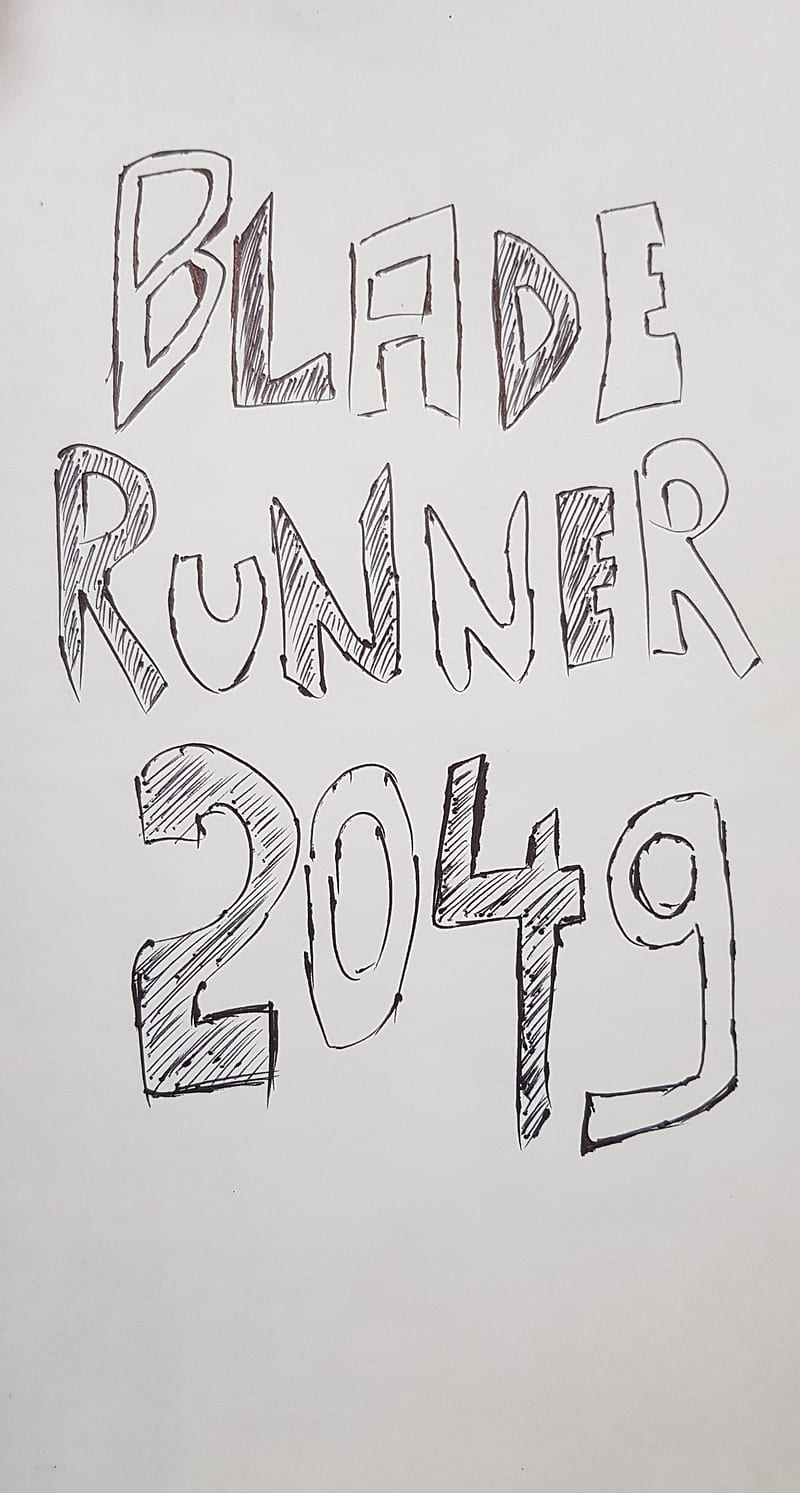 BLADE
RUNNER
2049